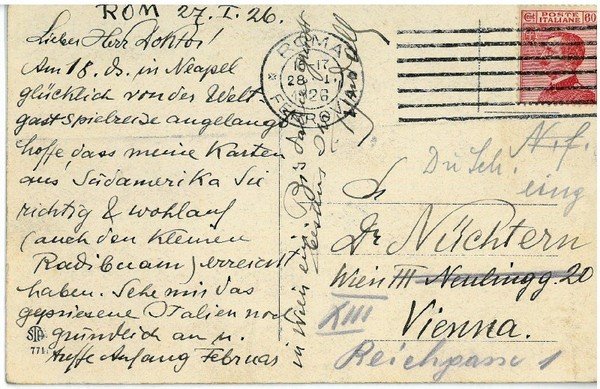 ROM 27. I. 26.
Lieber Herr Doktor!
Am 18. ds. in Neapel
glücklich von der Welt
gastspielreise angelangt
hoffe, dass meine Karten
aus Südamerika Sie
richtig & wohlauf
(auch den kleinen
) erreicht
haben. Sehe mir das
gepriesene Italien noch
gründlich an u.
treffe Anfang Februar
in Wien ein. Bis dahin
bestens
ROMA
16-17
28 - 1
1926
FERROVIA
POSTE ITALIANE
60
Dr. Nüchtern
Wien III Neulingg. 20
XIII
Vienna.
Reichgasse 1
STA
771